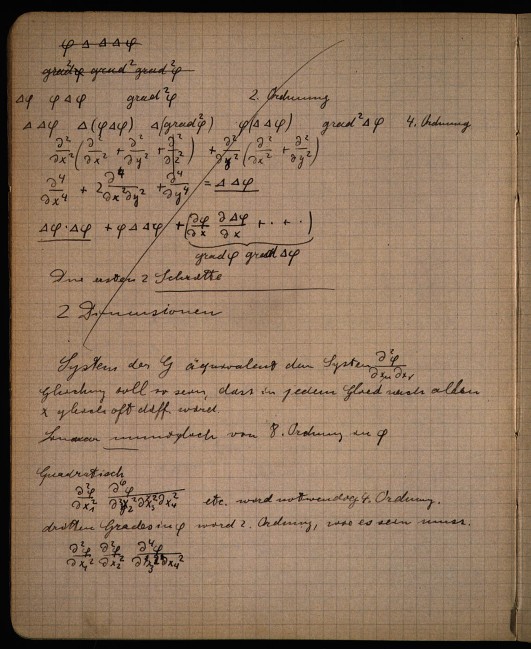 φ Δ Δ Δ φ
grad²φ grad² grad²φ
Δφ φΔφ grad²φ 2. Ordnung
Δ Δφ Δ(φΔφ) Δ(grad²φ) φ(ΔΔφ) grad²Δφ 4. Ordnung
∂²/∂x² (∂²/∂x² + ∂²/∂y² + ∂²/∂z²) + ∂²/∂y² (∂²/∂x² + ∂²/∂y²)
∂⁴/∂x⁴ + 2 ∂⁴/∂x²∂y² + ∂⁴/∂y⁴ = Δ Δφ
Δφ · Δφ + φ Δ Δφ + (∂φ/∂x ∂Δφ/∂x + · + ·)
gradφ grad Δφ
Die ersten 2 Schritte
2 Dimensionen
System der G äquivalent dem System ∂²φ/∂xμ∂xν
Gleichung soll so sein, dass in jedem Glied nach allen
x gleich oft diff. wird.
Linear unmöglich von 8. Ordnung in φ
Quadratisch
∂²φ/∂x₁² ∂⁶φ/∂x₂²∂x₃²∂x₄² etc. wird notwendig 4. Ordnung.
dritten Grades in φ wird 2. Ordnung, wie es sein muss.
∂²φ/∂x₁² ∂²φ/∂x₂² ∂⁴φ/∂x₃²∂x₄²